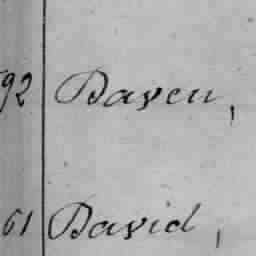 92 Daven,
61 David,